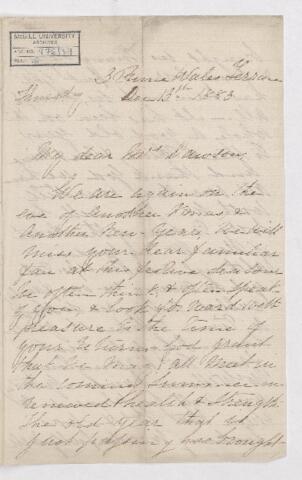 McGILL UNIVERSITY
ARCHIVES
ACC. NO.
REF.
3 Prince of Wales Terrace
Thursday Dec 13th 1883
My dear Mrs Dawson,
We are again on the
eve of another Xmas &
another New Year, we will
miss your dear familiar
face at this festive season
we often think & often speak
of you, & look forward with
pleasure to the time of
your return. God grant
that we may all meet in
the coming summer in
renewed health & strength
The old year that is
just passing has brought